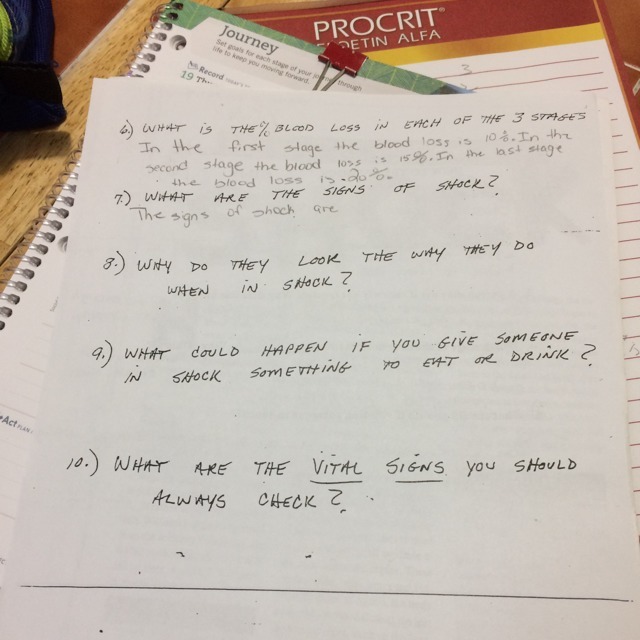 PROCRIT®
EPOETIN ALFA
Journey
Set goals for each stage of your journey through
life to keep you moving forward.
Record
19
3
6.) WHAT IS THE % BLOOD LOSS IN EACH OF THE 3 STAGES
In the first stage the blood loss is 10%. In the
second stage the blood loss is 15%. In the last stage
the blood loss is 20%.
7.) WHAT ARE THE SIGNS OF SHOCK?
The signs of shock are
8.) WHY DO THEY LOOK THE WAY THEY DO
WHEN IN SHOCK?
9.) WHAT COULD HAPPEN IF YOU GIVE SOMEONE
IN SHOCK SOMETHING TO EAT OR DRINK?
10.) WHAT ARE THE VITAL SIGNS YOU SHOULD
ALWAYS CHECK?